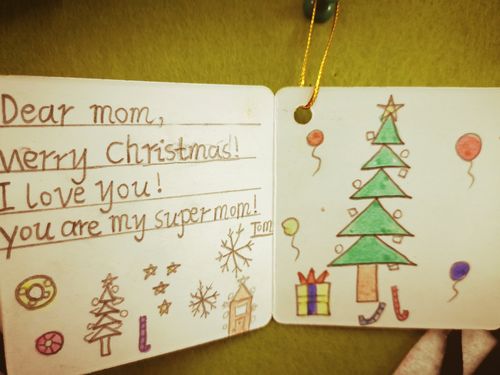 Dear mom,
Merry Christmas!
I love you!
you are my super mom!
Tom